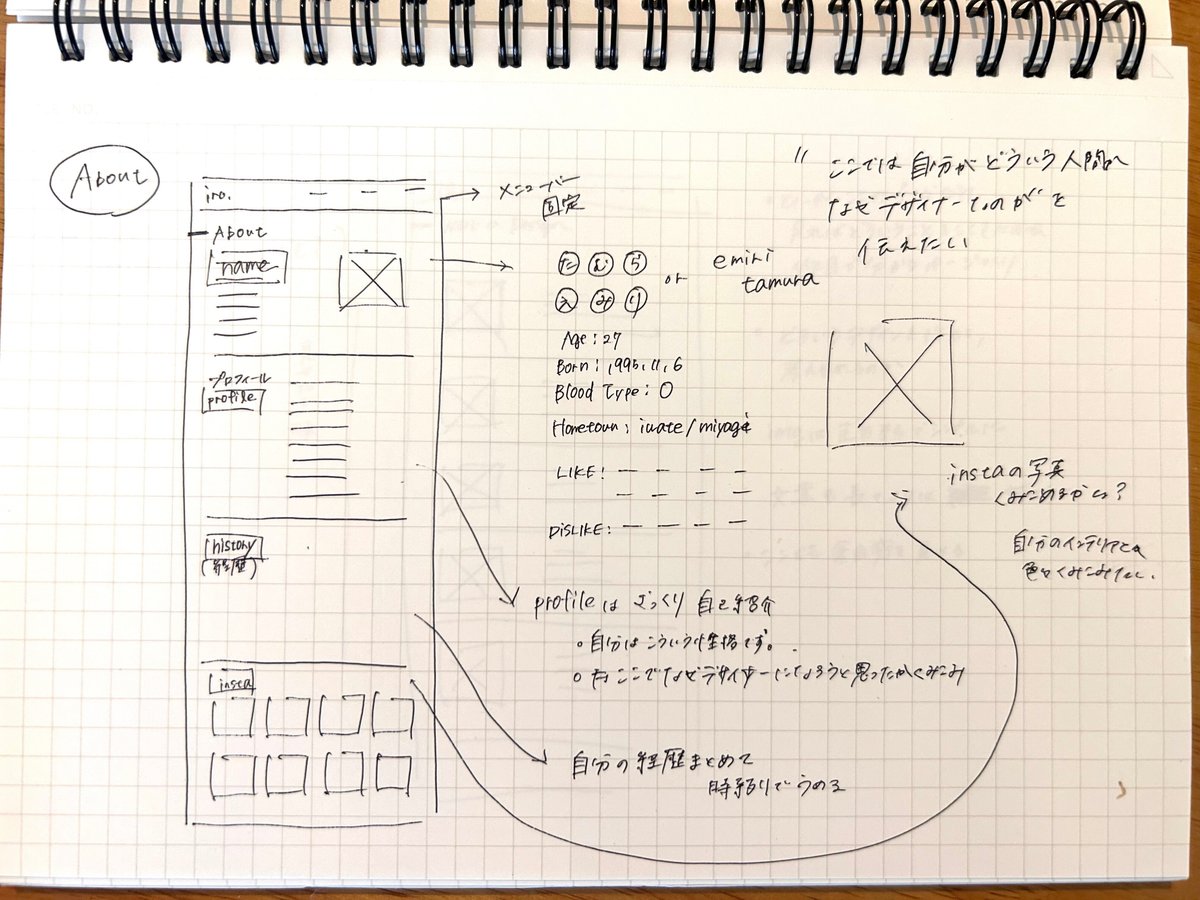 About
iro.
About
name
プロフィール
profile
history
(経歴)
insta
メニューバー
固定
たむら
えみり
or
emiri
tamura
Age : 27
Born : 1995.11.6
Blood Type : O
Hometown : iwate/miyagi
LIKE :
DISLIKE :
profileは ざっくり 自己紹介
自分はこういう性格です。
ここでなぜデザイナーになろうと思ったかくみこみ
自分の経歴まとめて
時系列でうめる
" ここでは 自分が どういう 人間で
なぜ デザイナーなのか を
伝えたい
instaの写真
くみこめるかな?
自分のインテリアとか
色々くみこみたい.